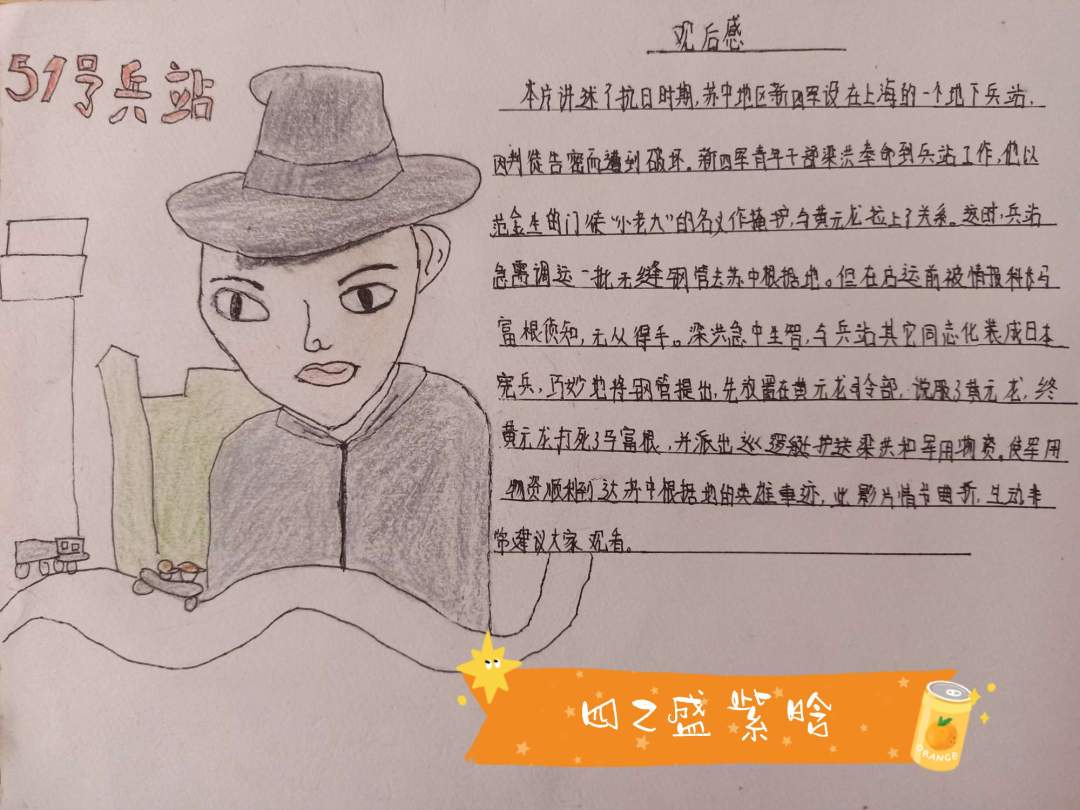 51号兵站
观后感
本片讲述了抗日时期,苏中地区新四军设在上海的一个地下兵站,
因判徒告密而遭到破坏。新四军青年干部梁洪奉命到兵站工作,他以
范金生的门徒“小老大”的名义作掩护,与黄元龙拉上了关系。这时,兵站
急需调运一批无缝钢管去苏中根据地。但在启运前被情报科长马
富根侦知,无从得手。梁洪急中生智,与兵站其它同志化装成日本
宪兵,巧妙地将钢管提出,先放置在黄元龙司令部,说服了黄元龙,终
黄元龙打死了马富根,并派出巡逻艇护送梁洪和军用物资。使军用
物资顺利到达苏中根据地的英雄事迹,此影片情节曲折,生动非
常建议大家观看。
四乙盛紫晗
ORANGE